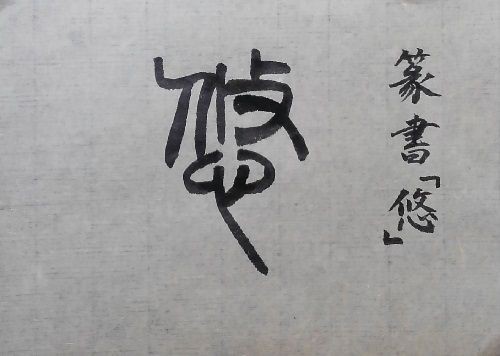 篆書「悠」
悠